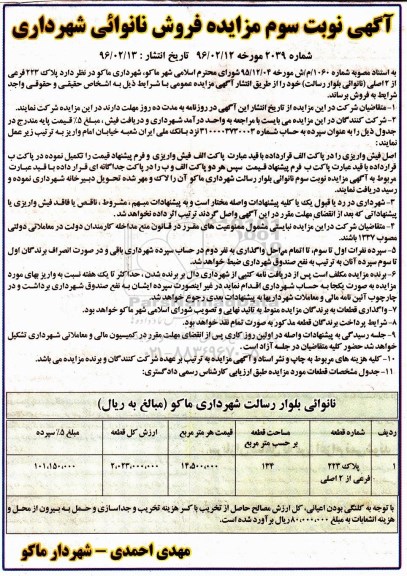 آگهی نوبت سوم مزایده فروش نانوائی شهرداری
شماره ۲۰۳۹ مورخه ۹۶/۰۲/۱۲ تاریخ انتشار : ۹۶/۰۲/۱۳
به استناد مصوبه شماره ۱۰۶۰/م/ش مورخه ۹۵/۱۲/۰۴ شورای محترم اسلامی شهر ماکو، شهرداری ماکو در نظر دارد پلاک ۲۲۳ فرعی
از ۲ اصلی (نانوائی بلوار رسالت) خود را از طریق انتشار آگهی مزایده عمومی با شرایط ذیل به اشخاص حقیقی و حقوقی واجد
شرایط به فروش برساند.
۱- متقاضیان شرکت در این مزایده از تاریخ انتشار این آگهی در روزنامه به مدت ده روز مهلت دارند در این مزایده شرکت نمایند.
۲- شرکت کنندگان در این مزایده می بایست با مراجعه به واحد درآمد شهرداری و دریافت فیش ، مبلغ ۵٪ قیمت پایه مندرج در
جدول ذیل را به عنوان سپرده به حساب شماره ۳۱۰۰۰۰۳۷۳۰۰۰۳ نزد بانک ملی ایران شعبه خیابان امام واریز به ترتیب زیر عمل
نمایند.
اصل فیش واریزی را در پاکت الف قرارداده با قید عبارت پاکت الف فیش واریزی و فرم پیشنهاد قیمت را تکمیل نموده در پاکت ب
قرارداده با قید عبارت پاکت ب فرم پیشنهاد قیمت سپس هر دو پاکت الف و ب را در پاکت جداگانه ای قرار داده با قید عبارت
مربوط به آگهی مزایده نوبت سوم نانوائی بلوار رسالت شهرداری ماکو آن را لاک و مهر شده تحویل دبیرخانه شهرداری نموده و
رسید دریافت نمایند.
۳- شهرداری در رد یا قبول یک یا کلیه پیشنهادات واصله مختار است و به پیشنهادات مبهم ، مشروط ، ناقص یا فاقد فیش واریزی یا
پیشنهاداتی که بعد از انقضای مهلت مقرر در این آگهی واصل گردند ترتیب اثر داده نخواهد شد.
۴- متقاضیان شرکت در این مزایده نبایستی مشمول ممنوعیت های مقرر در قانون منع مداخله کارمندان دولت در معاملاتی دولتی
مصوب ۱۳۳۷ باشند.
۵- سپرده نفرات اول تا سوم، تا اتمام مراحل واگذاری به نفر دوم در حساب سپرده شهرداری باقی و در صورت انصراف برندگان اول
تا سوم سپرده آنان به ترتیب به نفع صندوق شهرداری ضبط خواهد شد.
۶- برنده مزایده مکلف است پس از دریافت نامه کتبی از شهرداری دال بر برنده شدن ، حداکثر تا یک هفته نسبت به واریز بهای مورد
مزایده به صورت یکجا به حساب شهرداری اقدام نماید در غیر اینصورت سپرده ایشان به نفع صندوق شهرداری برداشت و در
چارچوب آئین نامه مالی و معاملات شهرداریها به پیشنهادات بعدی رجوع خواهد شد.
۷- واگذاری قطعات به برندگان مزایده منوط به تائید نهایی و تصویب شورای اسلامی شهر ماکو خواهد بود.
۸- شرایط پرداخت برندگان قطعه مذکور به صورت تمام نقد خواهد بود.
۹- جلسه رسیدگی به پیشنهادات واصله در اولین روز کاری پس از انقضای مهلت مقرر در کمیسیون مالی و معاملاتی شهرداری تشکیل
خواهد شد حضور کلیه متقاضیان در جلسه آزاد است.
۱۰- کلیه هزینه های مربوط به چاپ و نشر اسناد و آگهی مزایده به ترتیب بر عهده شرکت کنندگان و برنده مزایده می باشد.
۱۱- جدول مشخصات قطعات مورد مزایده طبق ارزیابی کارشناس رسمی دادگستری:
نانوائی بلوار رسالت شهرداری ماکو (مبالغ به ریال)
ردیف شماره قطعه مساحت قطعه بر حسب متر مربع قیمت هر متر مربع ارزش کل قطعه مبلغ ۵٪ سپرده
۱ پلاک ۲۲۳ فرعی از ۲ اصلی ۱۳۴ ۱۴,۵۰۰,۰۰۰ ۲,۰۲۳,۰۰۰,۰۰۰ ۱۰۱,۱۵۰,۰۰۰
با توجه به کلنگی بودن اعیانی، کل ارزش مصالح حاصل از تخریب با کسر هزینه تخریب و جداسازی و حمل به بیرون از محل و
هزینه انشعابات به مبلغ ۸۰,۰۰۰,۰۰۰ ریال برآورد شده است.
مهدی احمدی - شهردار ماکو